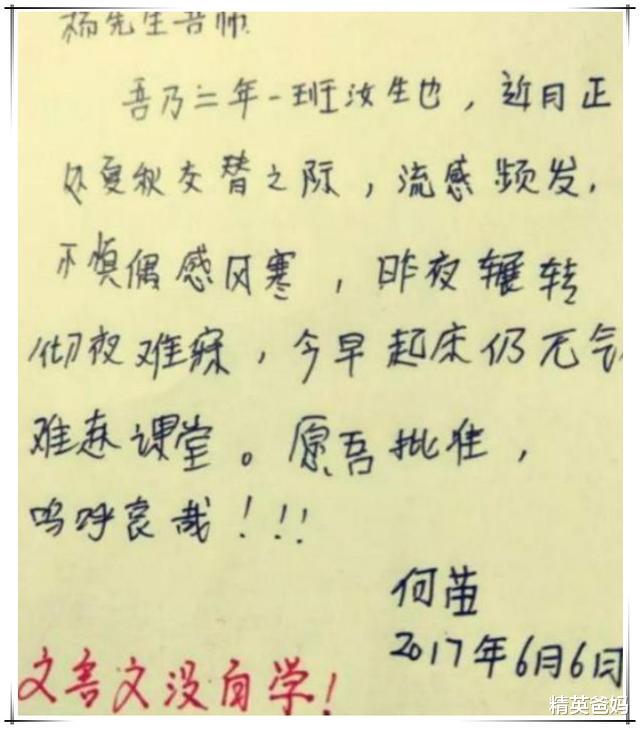 杨先生吾师
吾乃二年一班汝生也，近日正
处夏秋交替之际，流感频发，
不慎偶感风寒，昨夜辗转
彻夜难寐，今早起床仍无气
难赴课堂。愿吾批准，
呜呼哀哉！！！
何茧
2017年6月6日
文言文没白学！
精英爸妈